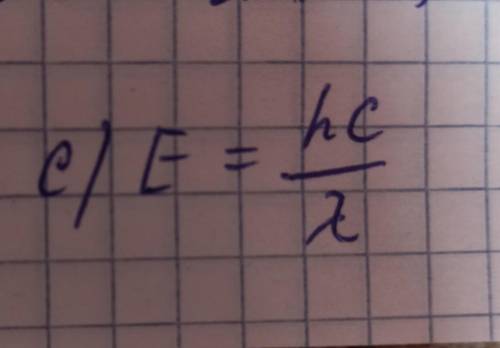 c) E = hc/λ